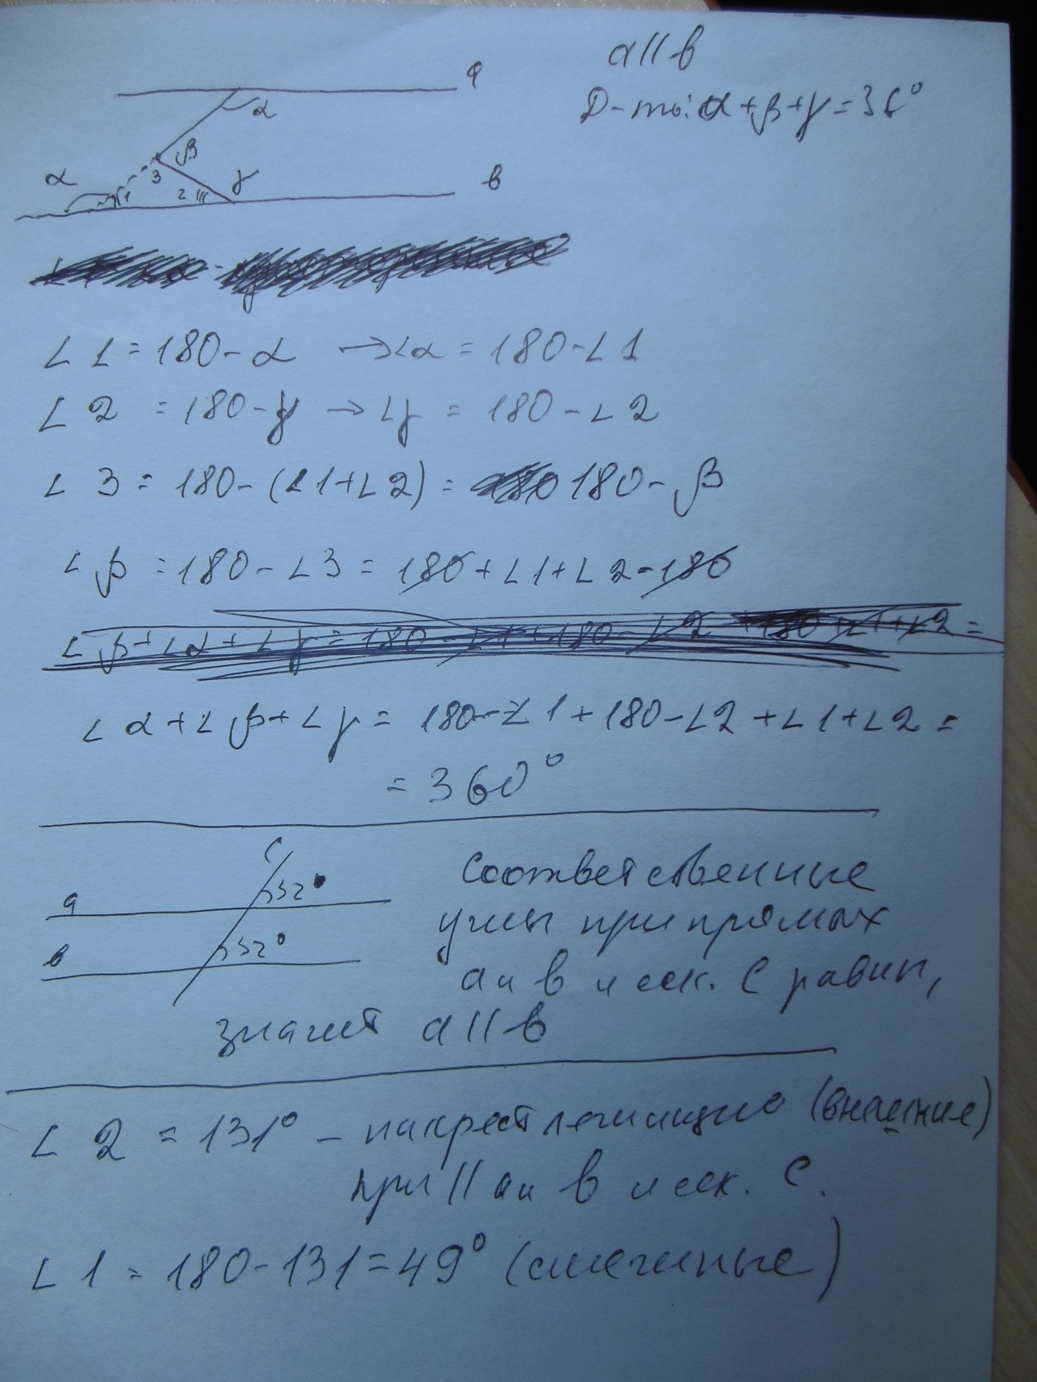 a || b
Д-ть: α + β + γ = 36°
a
α
β
α
3
γ
b
1
2
∠ 1 = 180 - α → ∠α = 180 - ∠1
∠ 2 = 180 - γ → ∠γ = 180 - ∠2
∠ 3 = 180 - (∠1 + ∠2) = 180 - β
∠ β = 180 - ∠3 = 180 + ∠1 + ∠2 - 180
∠ β + ∠α + ∠γ = 180 - ∠1 + 180 - ∠2 + ∠1 + ∠2 =
∠ α + ∠ β + ∠γ = 180 - ∠1 + 180 - ∠2 + ∠1 + ∠2 =
= 360°
c
a
b
Соответственные
углы при прямых
a и b и сек. c равны,
значит a || b
∠ 2 = 131° - накрест лежащие (внешние)
при || a и b и сек. c.
∠ 1 = 180 - 131 = 49° (смежные)